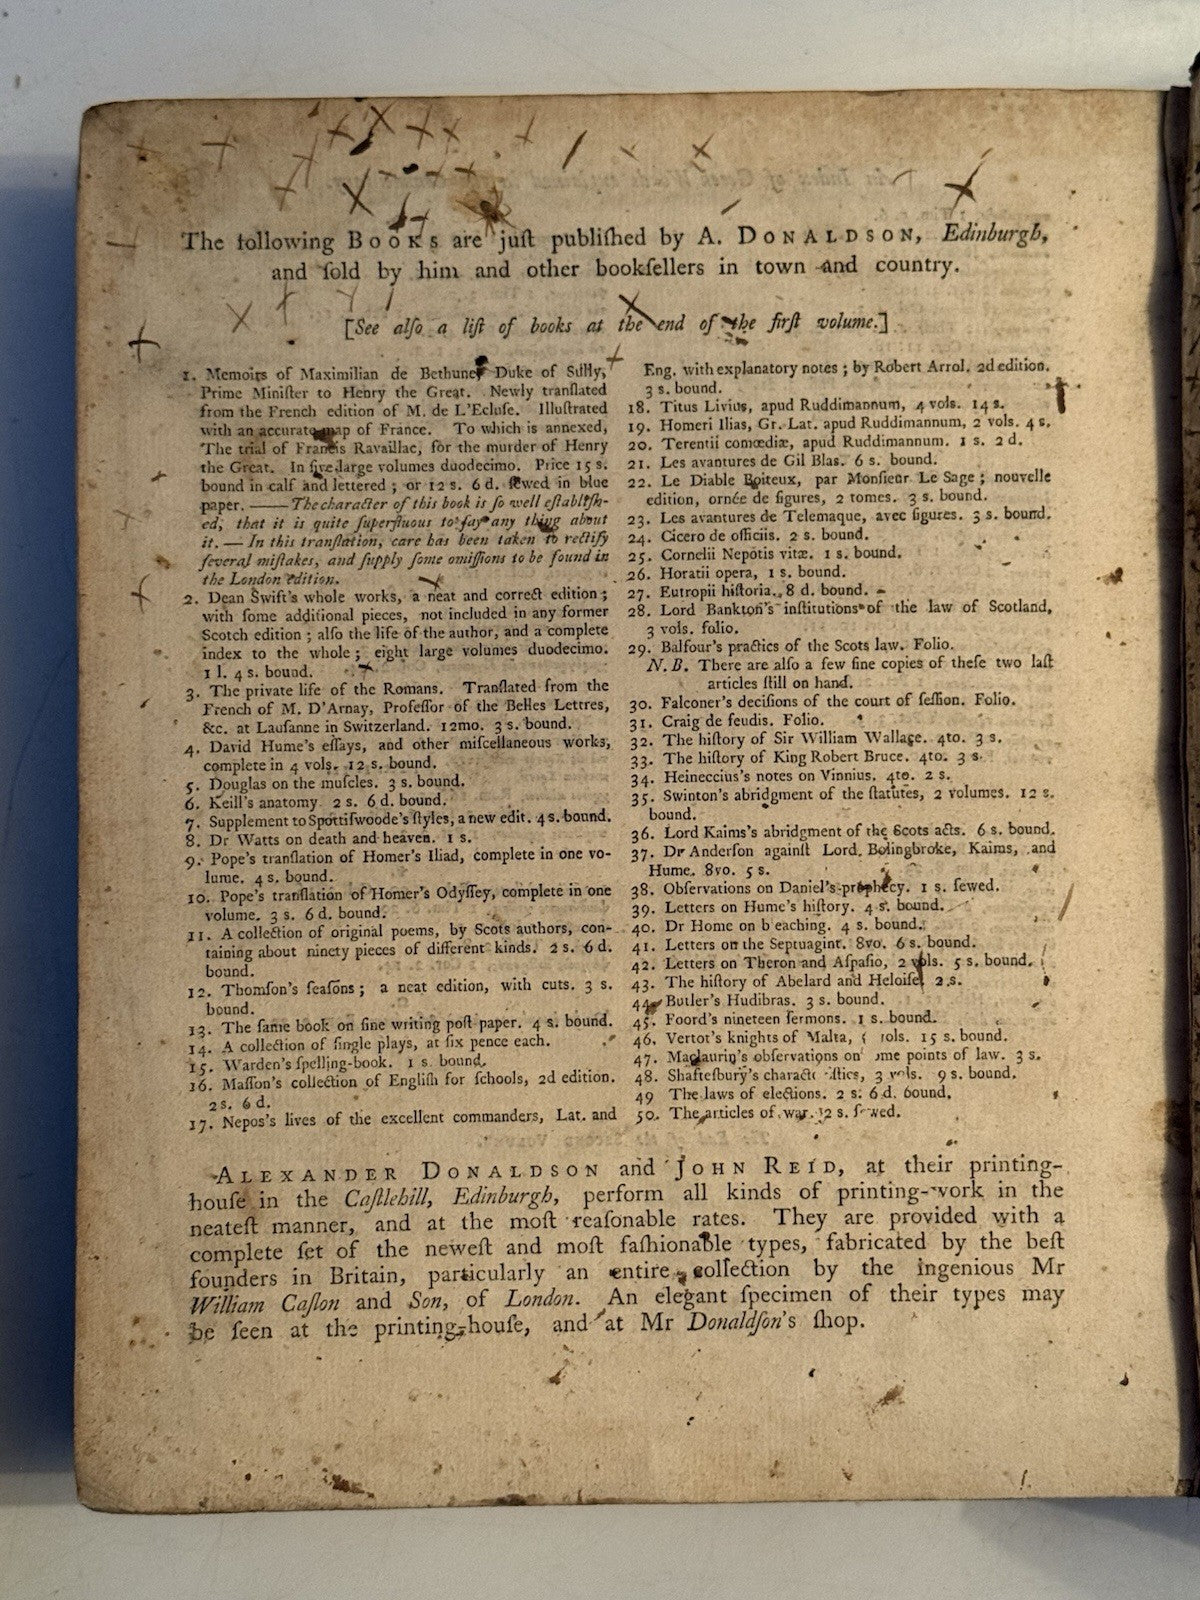 The following BOOKS are juſt publiſhed by A. DONALDSON, Edinburgh,
and ſold by him and other bookſellers in town and country.
[See alſo a liſt of books at the end of the firſt volume.]
1. Memoirs of Maximilian de Bethune, Duke of Sully,
Prime Miniſter to Henry the Great. Newly tranſlated
from the French edition of M. de L'Ecluſe. Illuſtrated
with an accurate map of France. To which is annexed,
The trial of Francis Ravaillac, for the murder of Henry
the Great. In five large volumes duodecimo. Price 15 s.
bound in calf and lettered; or 12 s. 6 d. ſewed in blue
paper. —— The character of this book is ſo well eſtabliſh-
ed, that it is quite ſuperfluous to ſay any thing about
it. — In this tranſlation, care has been taken to rectify
ſeveral miſtakes, and ſupply ſome omiſſions to be found in
the London edition.
2. Dean Swift's whole works, a neat and correct edition;
with ſome additional pieces, not included in any former
Scotch edition; alſo the life of the author, and a complete
index to the whole; eight large volumes duodecimo.
1 l. 4 s. bound.
3. The private life of the Romans. Tranſlated from the
French of M. D'Arnay, Profeſſor of the Belles Lettres,
&c. at Lauſanne in Switzerland. 12mo. 3 s. bound.
4. David Hume's eſſays, and other miſcellaneous works,
complete in 4 vols. 12 s. bound.
5. Douglas on the muſcles. 3 s. bound.
6. Keill's anatomy. 2 s. 6 d. bound.
7. Supplement to Spottiſwoode's ſtyles, a new edit. 4 s. bound.
8. Dr Watts on death and heaven. 1 s.
9. Pope's tranſlation of Homer's Iliad, complete in one vo-
lume. 4 s. bound.
10. Pope's tranſlation of Homer's Odyſſey, complete in one
volume. 3 s. 6 d. bound.
11. A collection of original poems, by Scots authors, con-
taining about ninety pieces of different kinds. 2 s. 6 d.
bound.
12. Thomſon's ſeaſons; a neat edition, with cuts. 3 s.
bound.
13. The ſame book on fine writing poſt paper. 4 s. bound.
14. A collection of ſingle plays, at ſix pence each.
15. Warden's ſpelling-book. 1 s. bound.
16. Maſſon's collection of Engliſh for ſchools, 2d edition.
2 s. 6 d.
17. Nepos's lives of the excellent commanders, Lat. and
Eng. with explanatory notes; by Robert Arrol. 2d edition.
3 s. bound.
18. Titus Livius, apud Ruddimannum, 4 vols. 14 s.
19. Homeri Ilias, Gr. Lat. apud Ruddimannum, 2 vols. 4 s.
20. Terentii comœdiæ, apud Ruddimannum. 1 s. 2 d.
21. Les avantures de Gil Blas. 6 s. bound.
22. Le Diable Boiteux, par Monſieur Le Sage; nouvelle
edition, ornée de figures, 2 tomes. 3 s. bound.
23. Les avantures de Telemaque, avec figures. 3 s. bound.
24. Cicero de officiis. 2 s. bound.
25. Cornelii Nepotis vitæ. 1 s. bound.
26. Horatii opera, 1 s. bound.
27. Eutropii hiſtoria. 8 d. bound.
28. Lord Bankton's inſtitutions of the law of Scotland,
3 vols. folio.
29. Balfour's practics of the Scots law. Folio.
N. B. There are alſo a few fine copies of theſe two laſt
articles ſtill on hand.
30. Falconer's deciſions of the court of ſeſſion. Folio.
31. Craig de feudis. Folio.
32. The hiſtory of Sir William Wallace. 4to. 3 s.
33. The hiſtory of King Robert Bruce. 4to. 3 s.
34. Heineccius's notes on Vinnius. 4to. 2 s.
35. Swinton's abridgment of the ſtatutes, 2 volumes. 12 s.
bound.
36. Lord Kaims's abridgment of the Scots acts. 6 s. bound.
37. Dr Anderſon againſt Lord Bolingbroke, Kaims, and
Hume. 8vo. 5 s.
38. Obſervations on Daniel's prophecy. 1 s. ſewed.
39. Letters on Hume's hiſtory. 4 s. bound.
40. Dr Home on b eaching. 4 s. bound.
41. Letters on the Septuagint. 8vo. 6 s. bound.
42. Letters on Theron and Aſpaſio, 2 vols. 5 s. bound.
43. The hiſtory of Abelard and Heloiſe. 2 s.
44. Butler's Hudibras. 3 s. bound.
45. Foord's nineteen ſermons. 1 s. bound.
46. Vertot's knights of Malta, vols. 15 s. bound.
47. Maclaurin's obſervations on ſome points of law. 3 s.
48. Shafteſbury's characteriſtics, 3 vols. 9 s. bound.
49 The laws of elections. 2 s. 6 d. bound.
50. The articles of war. 2 s. ſewed.
ALEXANDER DONALDSON and JOHN REID, at their printing-
houſe in the Caſtlehill, Edinburgh, perform all kinds of printing-work in the
neateſt manner, and at the moſt reaſonable rates. They are provided with a
complete ſet of the neweſt and moſt faſhionable types, fabricated by the beſt
founders in Britain, particularly an entire collection by the ingenious Mr
William Caſlon and Son, of London. An elegant ſpecimen of their types may
be ſeen at the printing-houſe, and at Mr Donaldſon's ſhop.